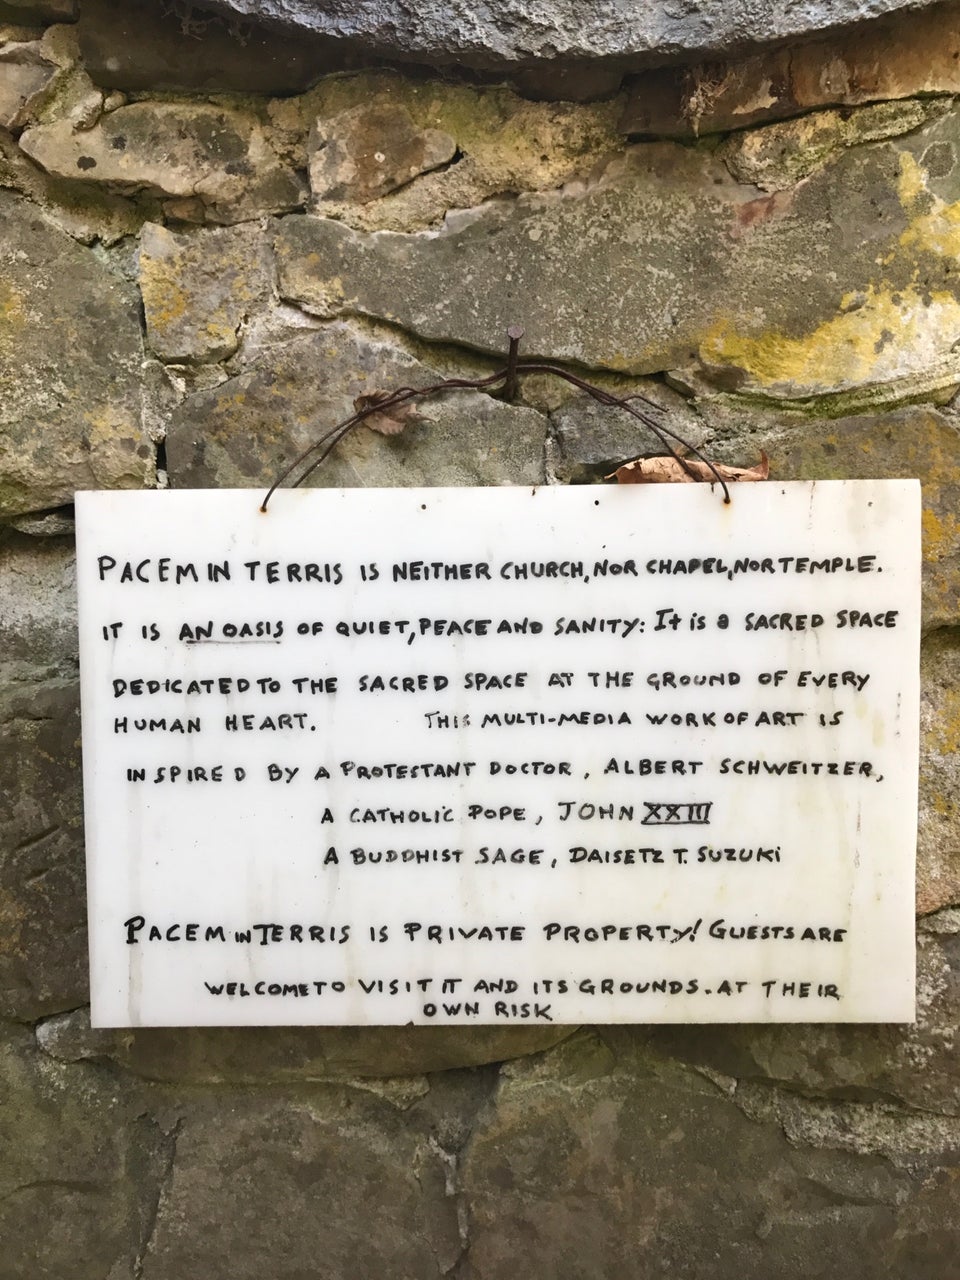 PACEM IN TERRIS IS NEITHER CHURCH, NOR CHAPEL, NOR TEMPLE.
IT IS AN OASIS OF QUIET, PEACE AND SANITY: It is a SACRED SPACE
DEDICATED TO THE SACRED SPACE AT THE GROUND OF EVERY
HUMAN HEART. THIS MULTI-MEDIA WORK OF ART IS
INSPIRED BY A PROTESTANT DOCTOR, ALBERT SCHWEITZER,
A CATHOLIC POPE, JOHN XXIII
A BUDDHIST SAGE, DAISETZ T. SUZUKI
PACEM IN TERRIS IS PRIVATE PROPERTY! GUESTS ARE
WELCOME TO VISIT IT AND ITS GROUNDS. AT THEIR
OWN RISK